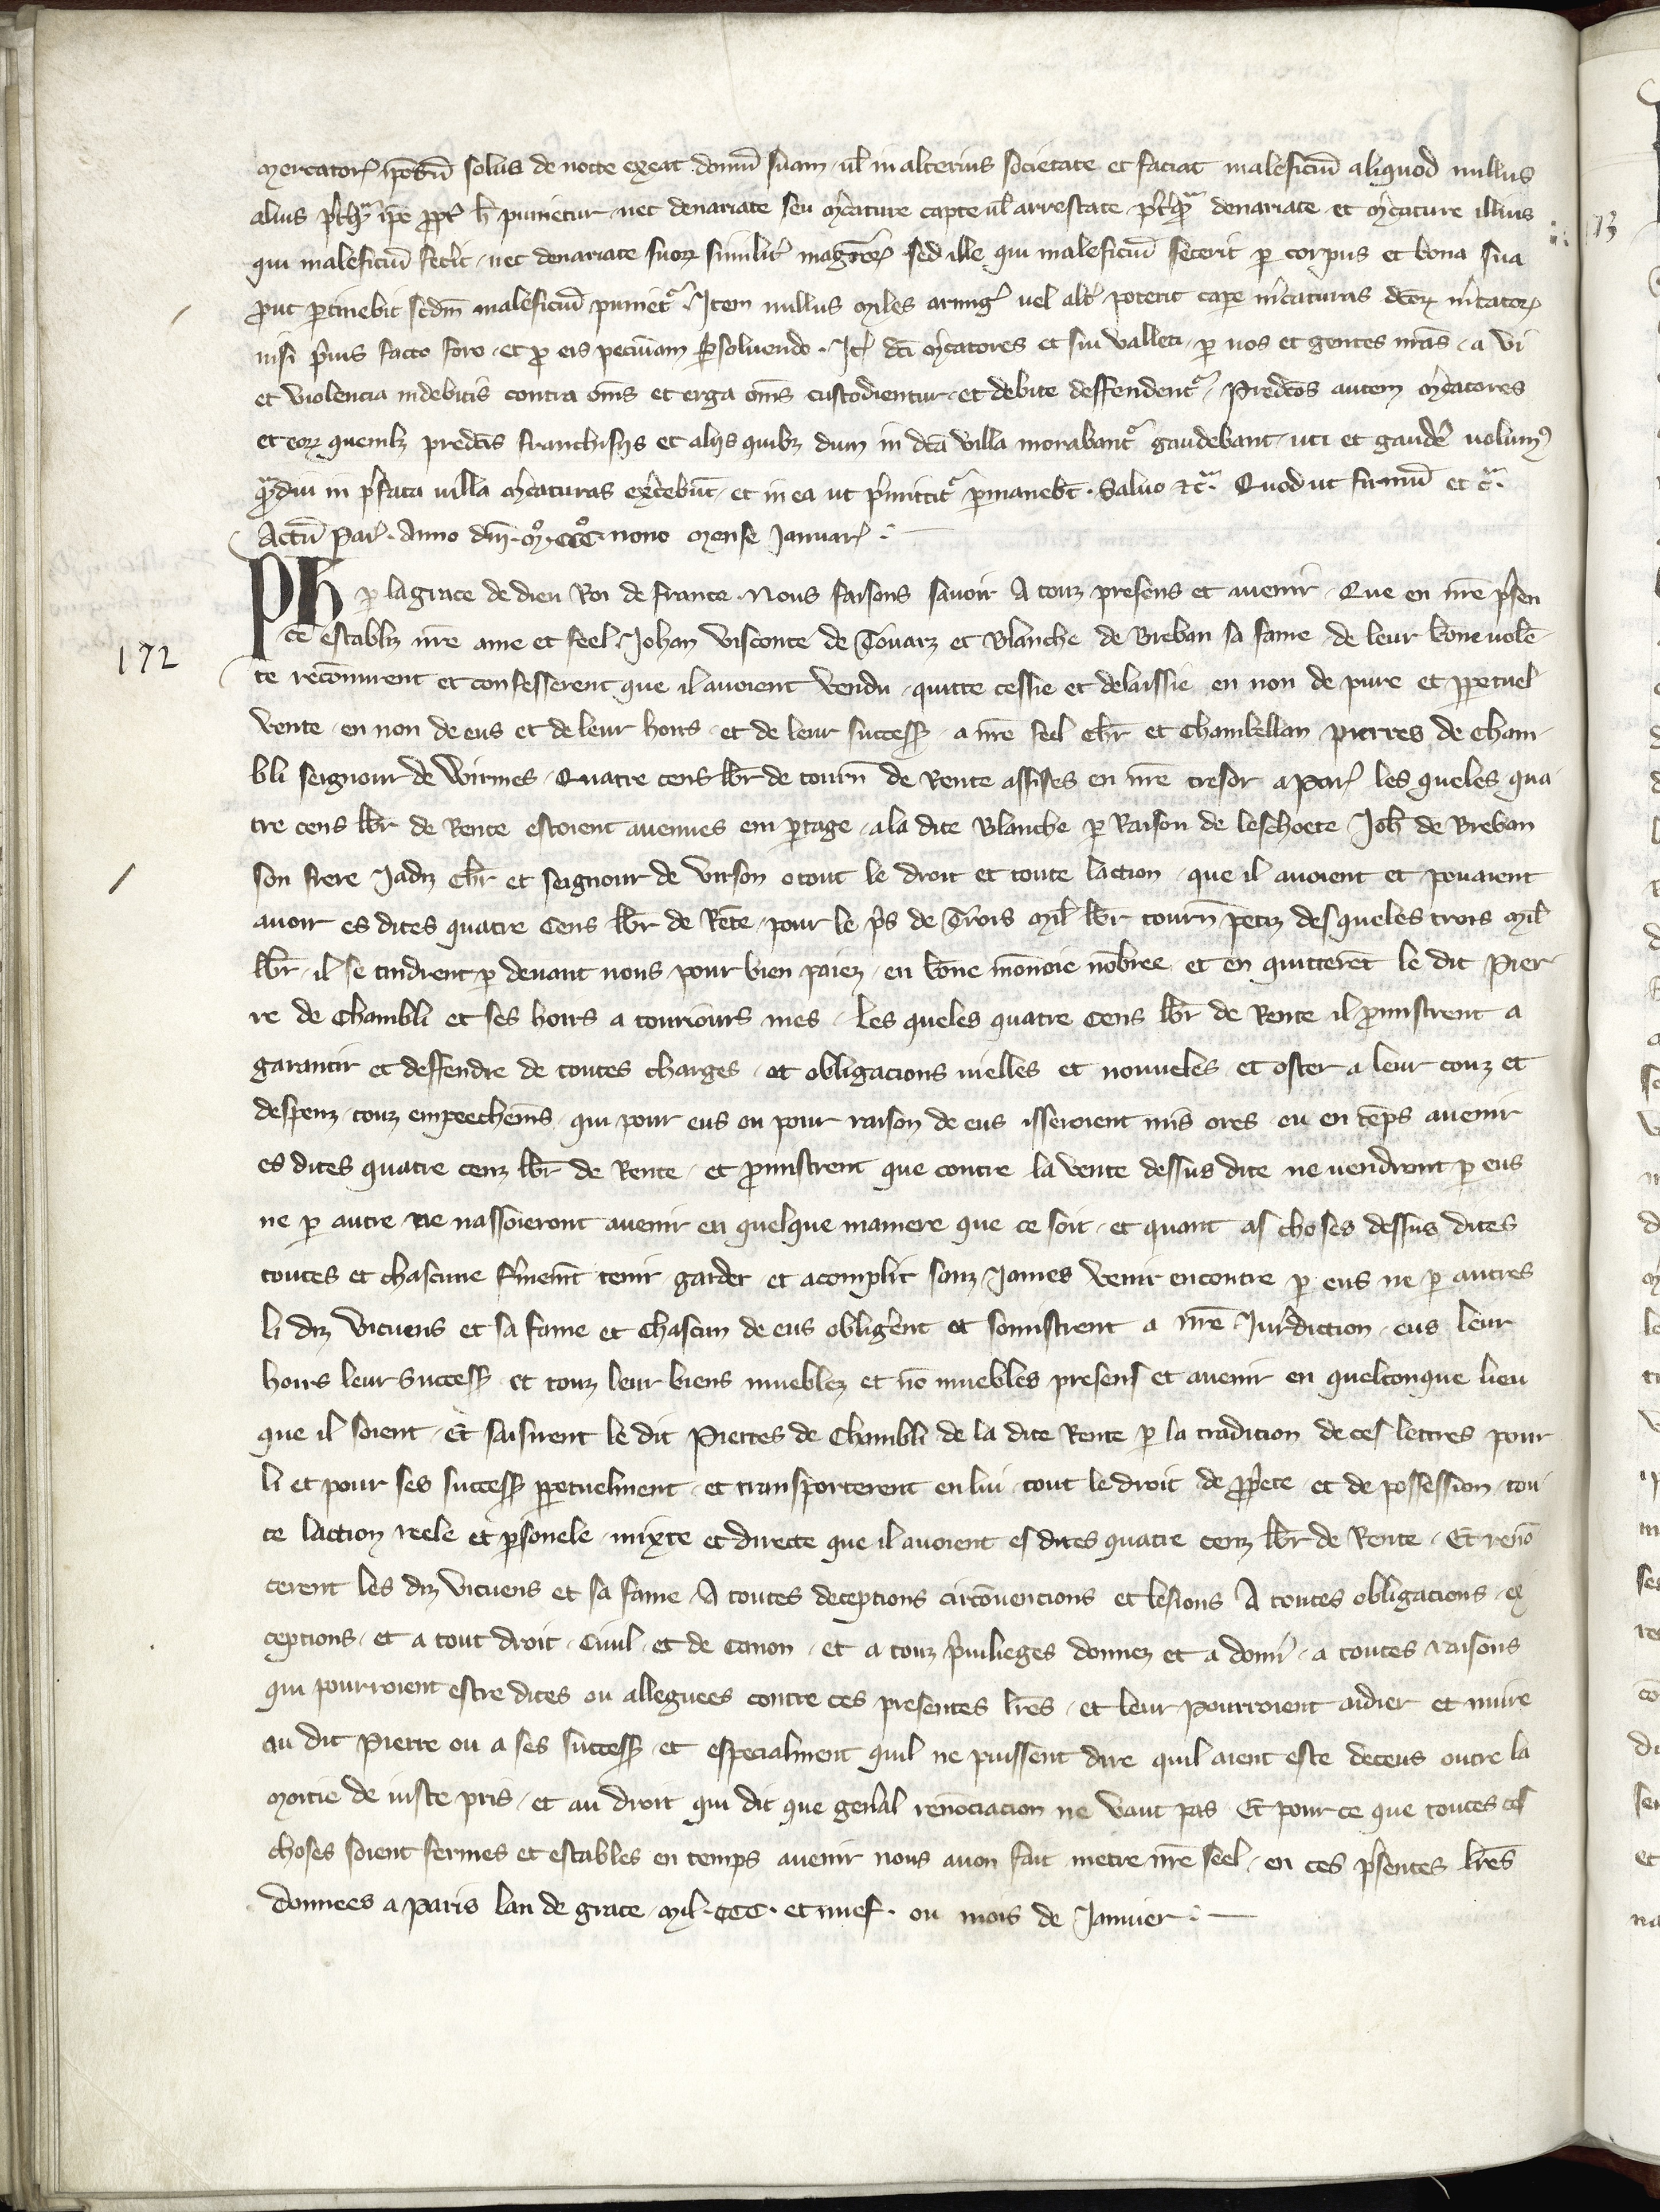 mercatorꝝ ipōrū solus de nocte exeat domū suam uł in alterius societate et faciat maleficiū aliquod nullus
alius p̄tq̄m ip̄e ꝓpt̄ h̄ punietur nec denariate seu m̄cature capte uł arrestate p̄tq̄m denariate et m̄cature illius
qui maleficiū fec̄it nec denariate suoꝝ similit̄ mag̅roꝝ sed ille qui maleficiū fecerit ꝑ corpus et bona sua
ꝓut ꝑtinebit scdm̄ maleficiū puniet᷑. Item nullus miles armiḡ uel alt̄ poterit cape m̄caturas dc̄oꝝ m̄catorꝝ
nisi p̄us facto foro et ꝓ eis pecuniam ꝑsoluendo. Itē dc̄i m̄catores et sui valleti ꝑ nos et gentes nr̄as a vi
et violencia indebitis contra om̄s et erga om̄s custodientur et debite deffendent᷑. Predc̄os autem m̄catores
et eoꝝ quemlꝫ predc̄is franchisiis et aliis quibꝫ dum in dc̄a villa morabant᷑ gaudebant uti et gaudē uolumꝰ
q̄mdiu in p̄fata uilla m̄caturas exc̄ebūt et in ea ut p̄mittit᷑ ꝑmanebt̄. Saluo ꝛc̄. Quod ut firmū et c̄.
Actū Paꝝ. Anno dn̄i. mͦ. CCCͦ nono mense Januarꝝ
172
Ph ꝑ la grace de dieu Roi de france. Nous faisons sauoir A touz presens et auenir Que en nr̄e p̄sen
ce establiz nr̄e ame et feel Johan visconte de Touarz et Blanche de Breban sa fame de leur bōne uolē
te recōnurent et confesserent que il auoient vendu quitte cessie et delaissie en non de pure et ꝑpetuel
vente en non de eus et de leur hoirs et de leur success̄ a nr̄e feel chr̄ et chambellan pierres de Cham
bli seignour de Wirmes Quatre cens lb̄r de tourn̄ de Rente assises en nr̄e tresor a Parꝝ les queles qua
tre cens lb̄r de Rente estoient auenues em ꝑtage a la dite Blanche ꝑ Raison de leschoete Joh̄ de Breban
son frere Jadiz chr̄ et seignour de virson o tout le droit et toute laction que il auoient et pouaient
auoir es dites quatre Cens lb̄r de Rēte pour le p̄s de Trois mil lb̄r tourn̄ petiz des queles trois mil
lb̄r il se tindrent ꝑ deuant nous pour bien paiez en bōne mōnoie nōbree et en quitterēt le dit Pier
re de Chambli et ses hoirs a touriours mes. Les queles quatre Cens lb̄r de Rente il ꝓmistrent a
garantir et deffendre de toutes charges et obligacions uielles et nouueles et oster a leur couz et
despenz touz empeechem̄s qui pour eus ou pour raison de eus isseroient mis ores ou en tēps auenir
es dites quatre cenz lb̄r de Rente et ꝓmistrent que contre la vente dessus dite ne uendront ꝑ eus
ne ꝑ autre ne nassoieront auenir en quelque maniere que ce soit et quant as choses dessus dites
toutes et chascune f̄memt̄ tenir garder et acomplir sanz James venir encontre ꝑ eus ne ꝑ autres
li diz vicuens et sa fame et Chascun de eus obliḡent et sousmistrent a nr̄e Jur̄diction eus leur
hoirs leur Success̄ et touz leur biens mueblez et nō muebles presens et auenir en quelconque lieu
que il soient Et saisirent le dit Pierres de Chambli de la dite Rente ꝑ la tradicion de ces lettres pour
li et pour ses success̄ ꝑpetuelment et transporterent en lui tout le droit de ꝓp̄ete et de possession tou
te laction reele et ꝑsonele mixte et directe que il auoient es dites quatre cenz lb̄r de Rente Et renō
cerent les diz vicuens et sa fame A toutes deceptions circōuencions et lesions A toutes obligacions ex
ceptions et a tout droit Ciuil et de Canon et a touz p̄uileges donnez et a donn̄ a toutes raisons
qui pourroient estre dites ou alleguees contre ces presentes lr̄es et leur pourroient aidier et nuire
au dit Pierre ou a ses success̄ et especialment quil ne puissent dire quil aient este deceus outre la
moitie de iuste pris et au droit qui dit que gen̄al renōciacion ne vaut pas Et pour ce que toutes ces
choses soient fermes et estables en temps auenir nous auon fait metre nr̄e seel en ces p̄sentes lr̄es
donnees a Paris lan de grace mil. CCC. et nuef. ou mois de Januier